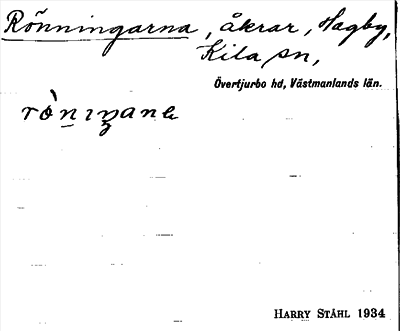 Rönningarna, åkrar, Hagby,
Kila sn,
Övertjurbo hd, Västmanlands län.
HARRY STÅHL 1934